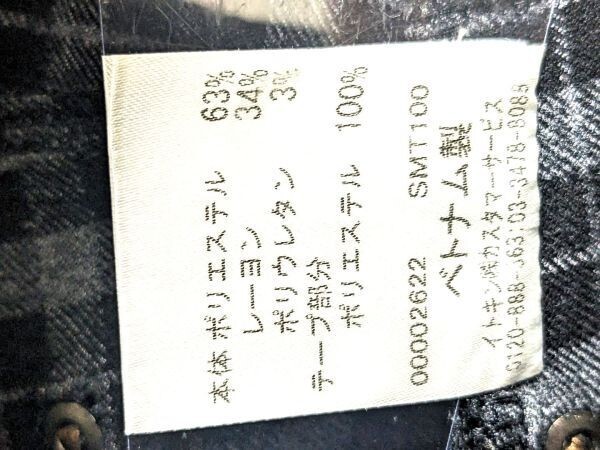 本体 ポリエステル 63%
レーヨン 34%
ポリウレタン 3%
テープ部分
ポリエステル 100%
00002622 SMT100
ベトナム製
イトキン㈱カスタマーサービス
0120-888-363:03-3478-8088